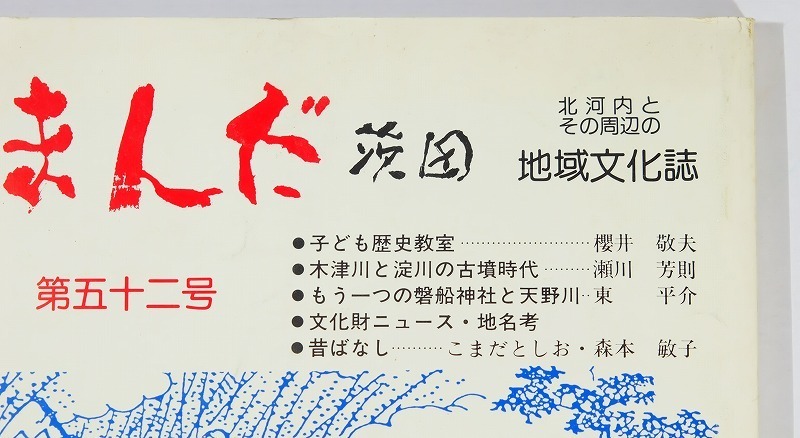 まんだ 茨田
北河内と
その周辺の
地域文化誌
第五十二号
●子ども歴史教室……………………櫻井 敬夫
●木津川と淀川の古墳時代………瀬川 芳則
●もう一つの磐船神社と天野川‥東 平介
●文化財ニュース・地名考
●昔ばなし………こまだとしお・森本 敏子